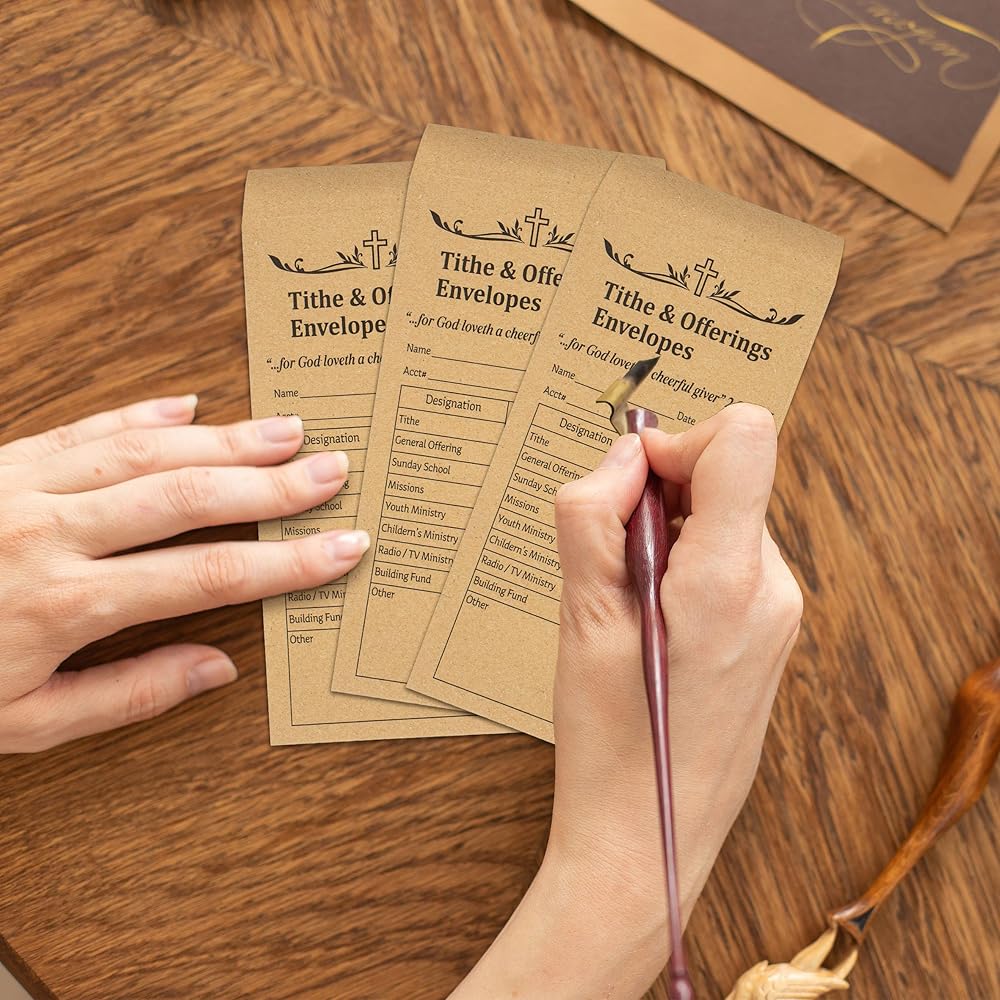 Tithe &
Envelope
"...for God loveth a
Name
Designation
School
Missions
Radio / TV
Building
Other
Tithe &
Envelopes
"...for God loveth a
Name
Acct#
Designation
Tithe
General Offering
Sunday School
Missions
Youth Ministry
Childern's Ministry
Radio / TV Ministry
Building Fund
Other
Tithe & Offerings
Envelopes
"...for God cheerful giver"
Name Date
Acct#
Designation
Tithe
General Offering
Sunday
Missions
Youth Ministry
Childern's Ministry
Radio / TV Ministry
Building Fund
Other